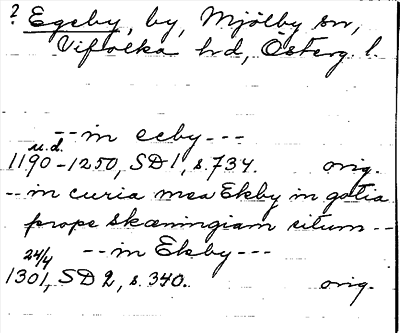 ? Egeby, by, Mjölby sn,
Vifolka hd, Österg. l.
-- in eeby ---
u.d.
1190-1250, SD 1, s. 734. orig.
-- in curia mea Ekby in gotia
prope skæningiam situm --
24/4 -- in Ekby ---
1301, SD 2, s. 340. orig.